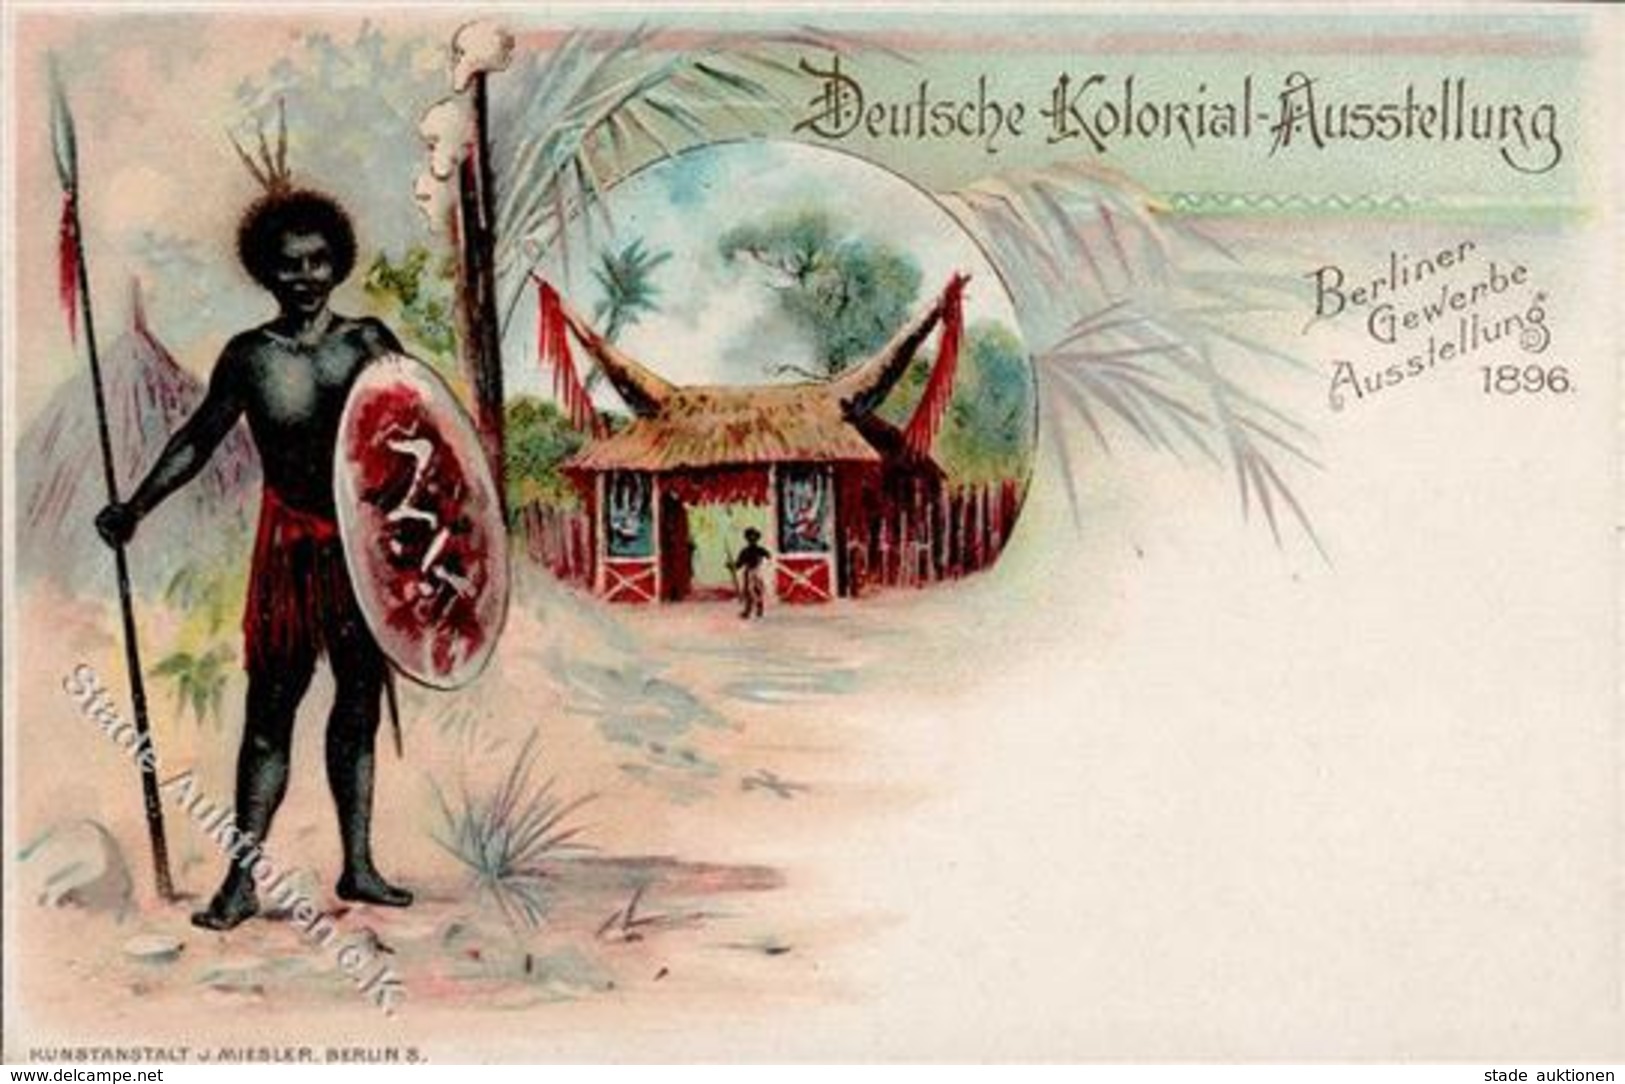 Deutsche Kolonial-Ausstellung
Berliner
Gewerbe
Ausstellung
1896.
Stade Auktionen e.K.
KUNSTANSTALT J. MIESLER, BERLIN S.
www.delcampe.net
stade auktionen